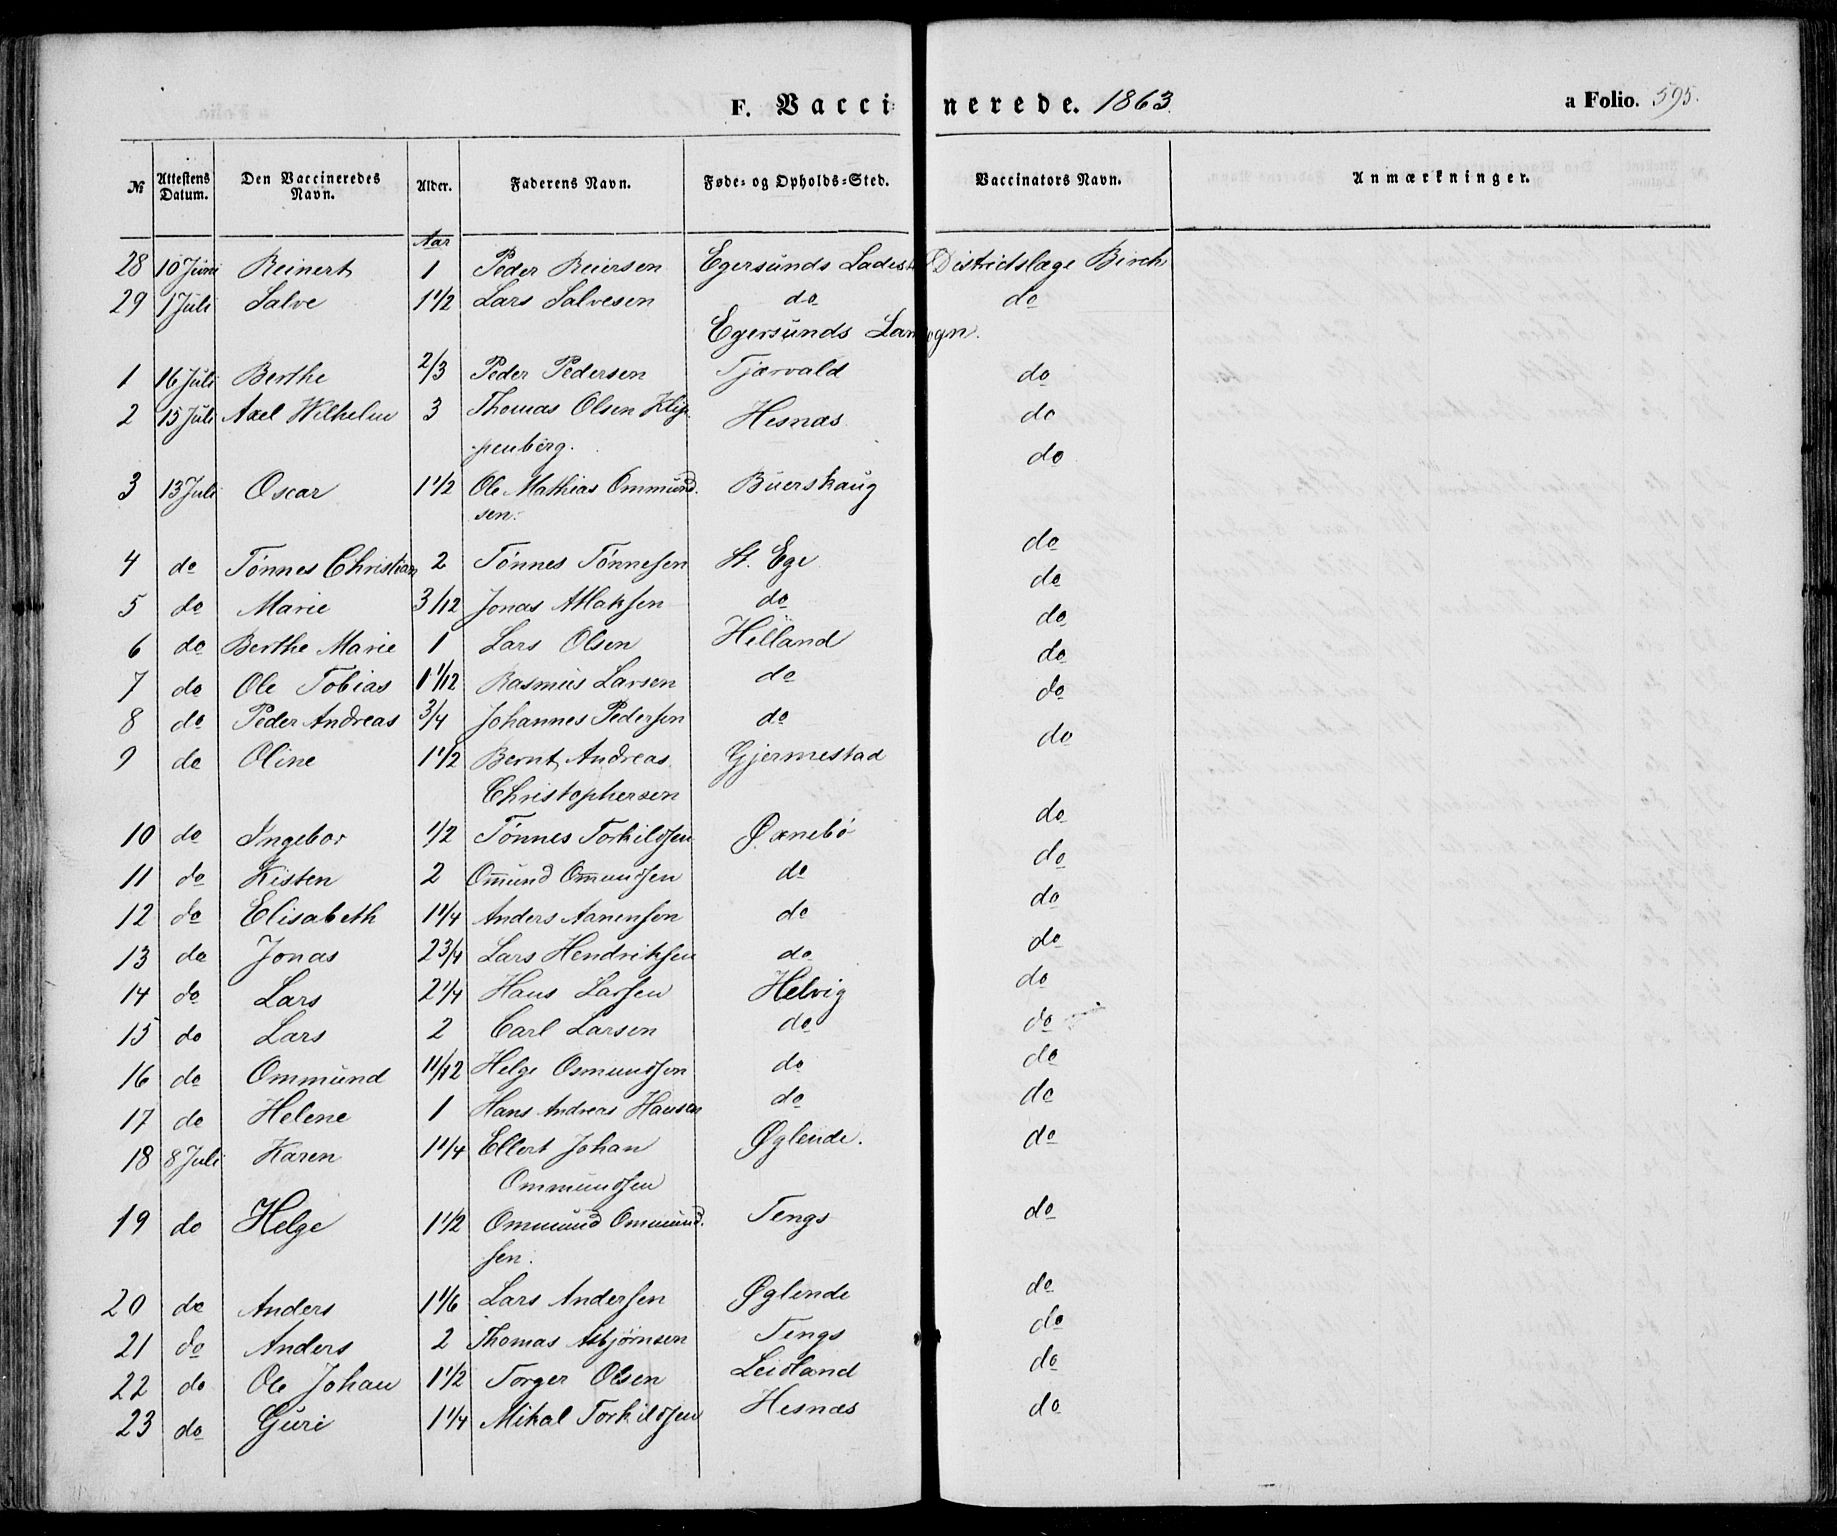 F. Vaccinerede. 1863. a Folio. 595.
№ Attestens Datum. Den Vaccineredes Navn. Alder. Faderens Navn. Føde- og Opholds-Sted. Vaccinators Navn. Anmærkninger.
Aar
28 10 Juni Reinert 1 Peder Reiersen Egersunds Ladest Districtslæge Birch
29 1 Juli Salve 1 1/2 Lars Salvesen do do
Egersunds Landsogn.
1 16 Juli Berthe 2/3 Peder Pedersen Tjærvald do
2 15 Juli Axel Wilhelm 3 Thomas Olsen Klip- Hesnæs do
penberg. do
3 13 Juli Oscar 1 1/2 Ole Mathias Ommund- Buershaug
sen.
4 do Tønnes Christian 2 Tønnes Tønnesen St. Ege do
5 do Marie 3/12 Jonas Aslaksen do do
6 do Berthe Marie 1 Lars Olsen Helland do
7 do Ole Tobias 1 1/12 Rasmus Larsen do do
8 do Peder Andreas 3/4 Johannes Pedersen do do
9 do Oline 1 1/2 Bernt Andreas Gjermestad do
Christophersen
10 do Ingebor 1/2 Tønnes Torkildsen Øxnebø do
11 do Kisten 2 Om̅und Om̅undsen do do
12 do Elisabeth 1 1/4 Anders Aanensen do do
13 do Jonas 2 3/4 Lars Hendriksen do do
14 do Lars 2 1/4 Hans Larsen Helvig do
15 do Lars 2 Carl Larsen do do
16 do Ommund 11/12 Helge Osmundsen do do
17 do Helene 1 Hans Andreas Hansen do do
18 8 Juli Karen 1 1/4 Ellert Johan Øglende. do
Ommundsen
19 do Helge 1 1/2 Ommund Ommund- Tengs do
sen.
20 do Anders 1 1/6 Lars Andersen Øglende do
21 do Anders 2 Thomas Asbjørnsen Tengs do
22 do Ole Johan 1 1/2 Torger Olsen Leidland do
23 do Guri 1 1/4 Mikal Torkildsen Hesnæs do